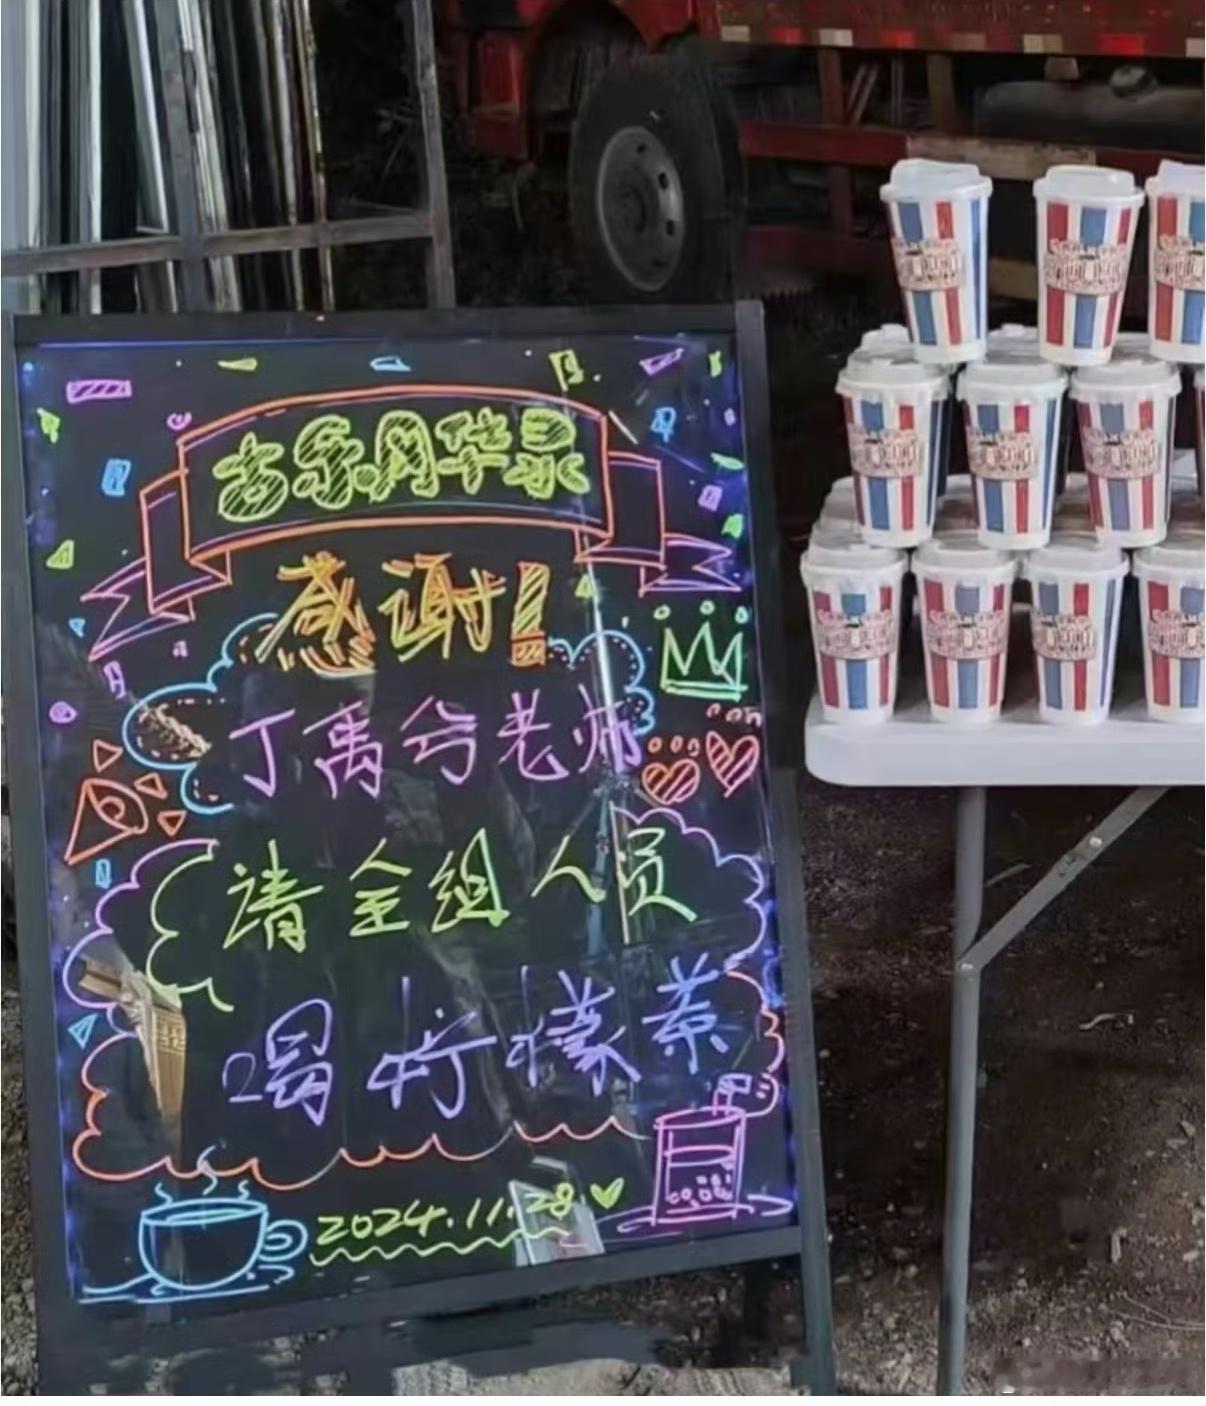 古乐风华录
感谢!
丁禹兮老师
请全组人员
喝柠檬茶
2024.11.28